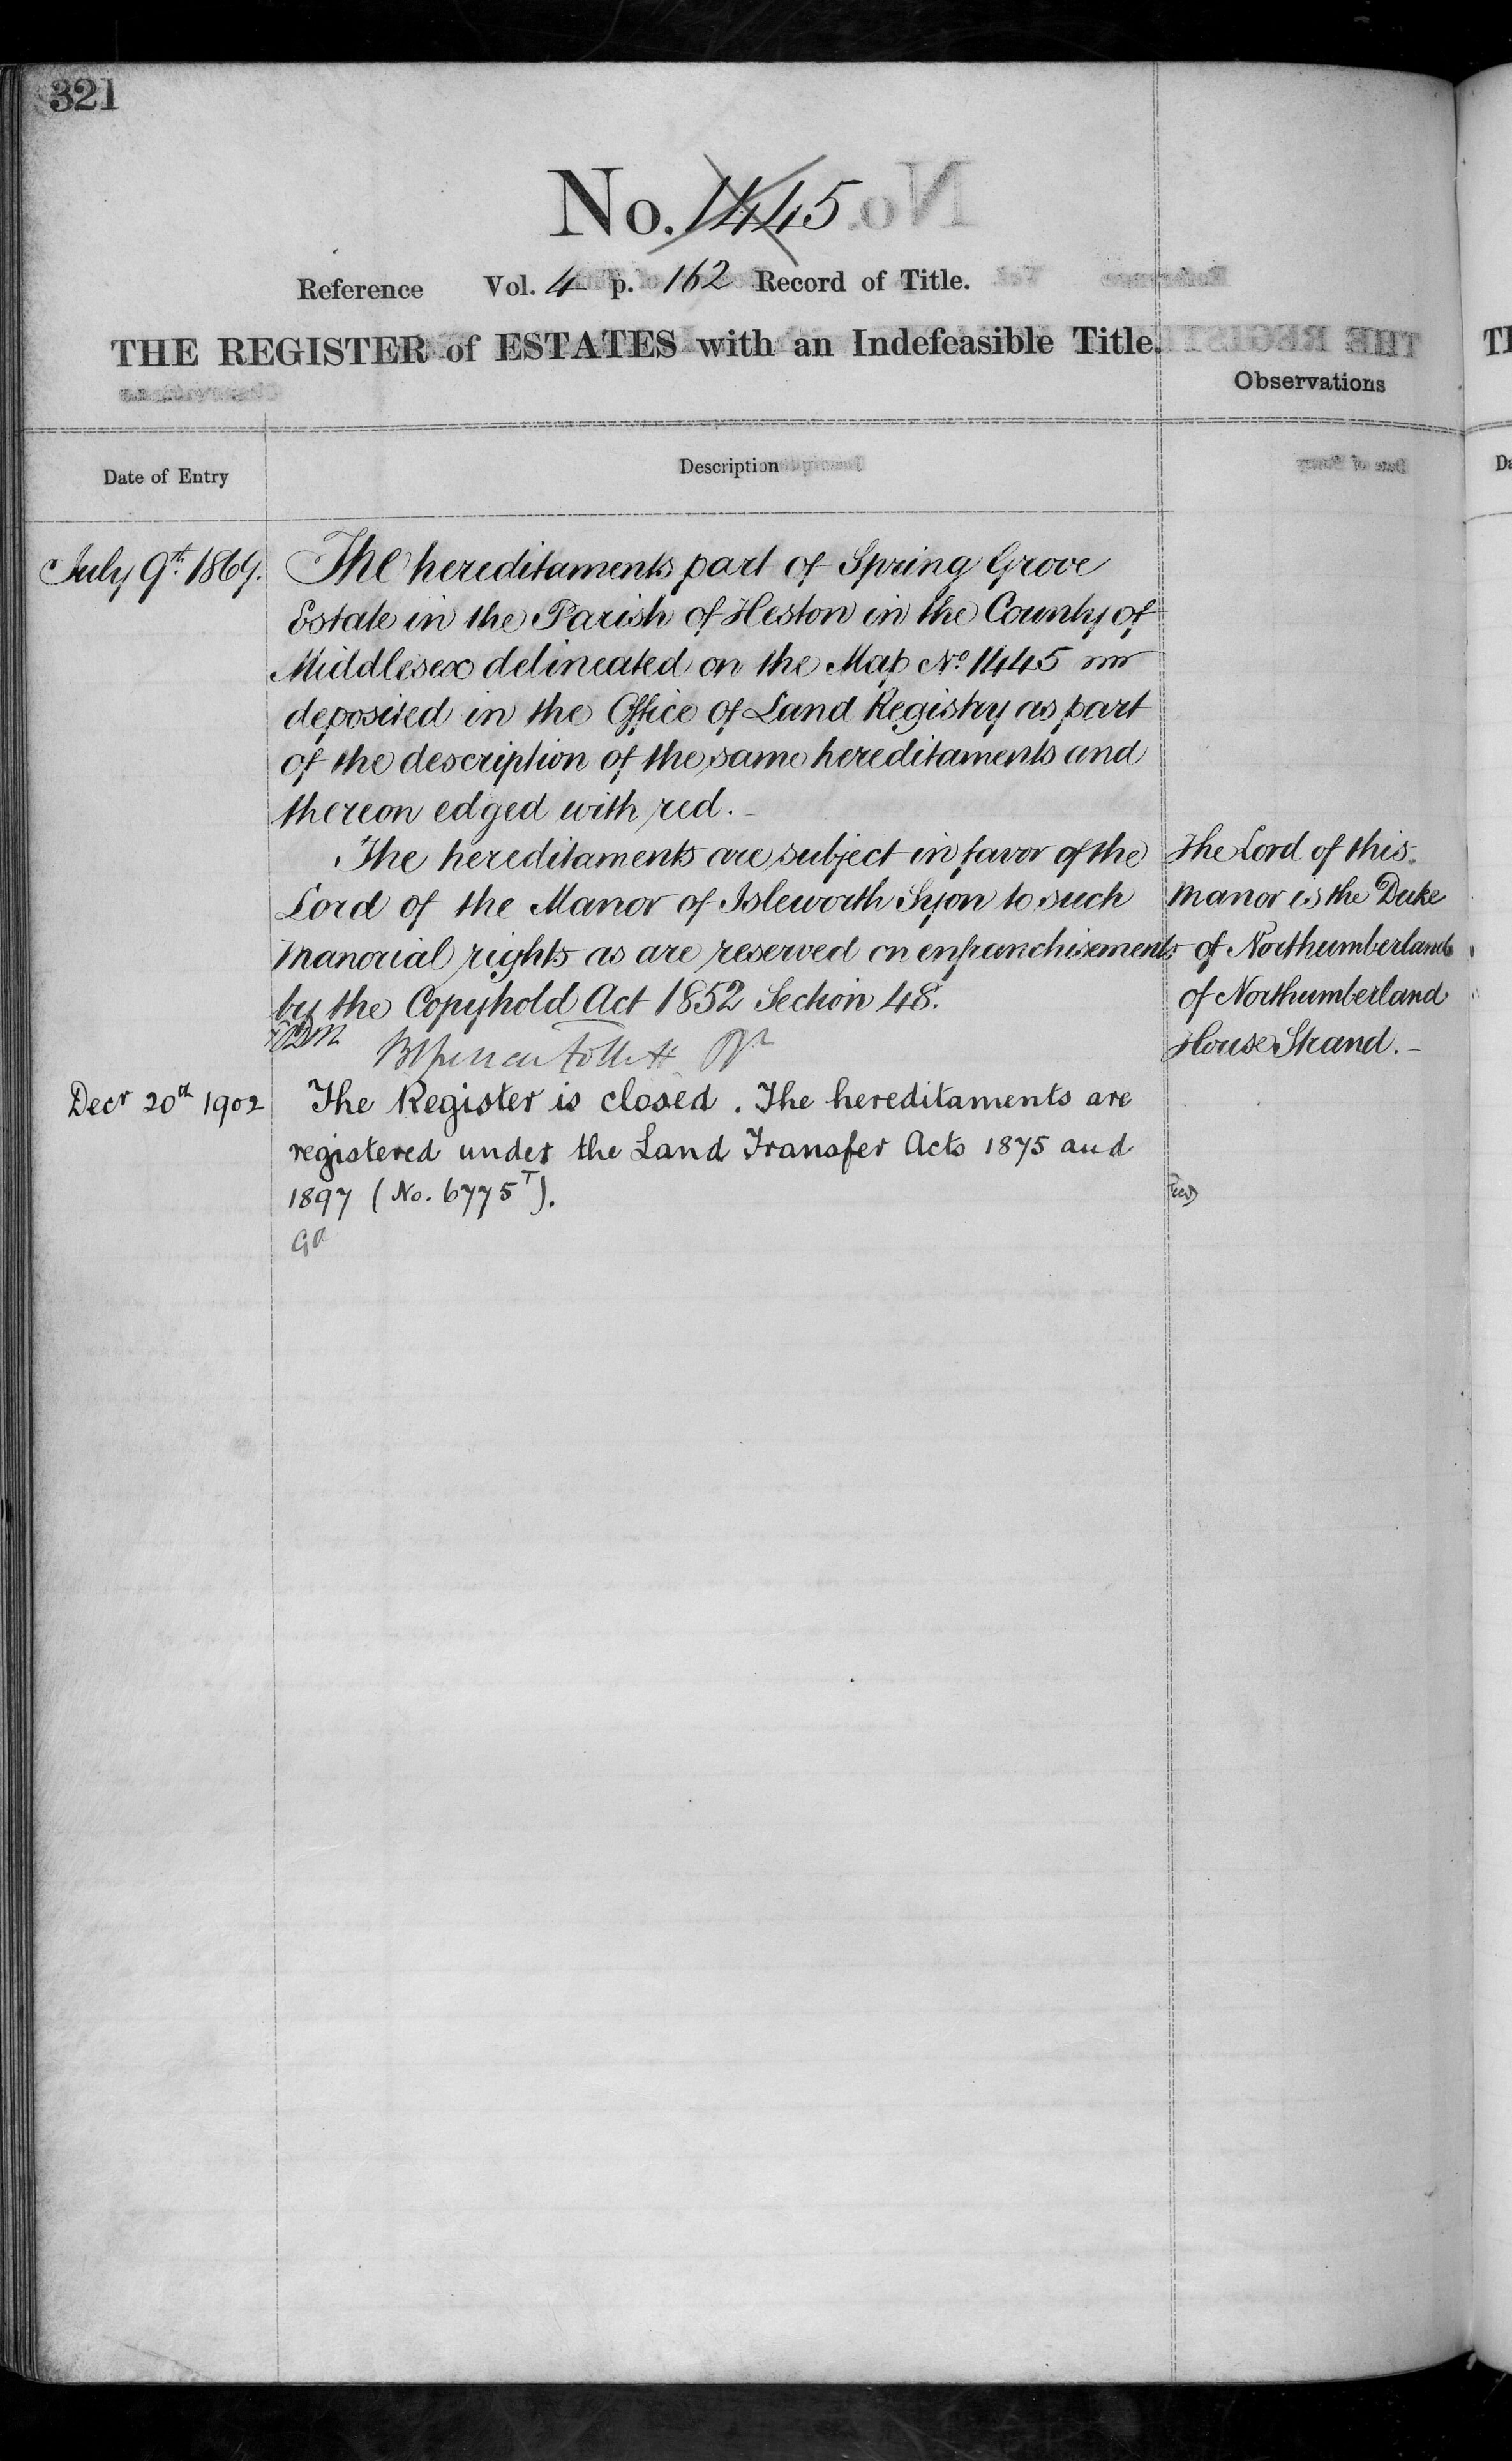 321
No. 1445
Reference Vol. 4 p. 162 Record of Title.
THE REGISTER of ESTATES with an Indefeasible Title.
Observations
Date of Entry
Description
July 9th 1869.
The hereditaments part of Spring Grove
Estate in the Parish of Heston in the County of
Middlesex delineated on the Map No 1445
deposited in the Office of Land Registry as part
of the description of the same hereditaments and
thereon edged with red.
The hereditaments are subject in favor of the
Lord of the Manor of Isleworth Syon to such
manorial rights as are reserved on enfranchisements
by the Copyhold Act 1852 Section 48.
The Lord of this
Manor is the Duke
of Northumberland
of Northumberland
House Strand.
Decr 20th 1902
The Register is closed. The hereditaments are
registered under the Land Transfer Acts 1875 and
1897 (No. 6775T).